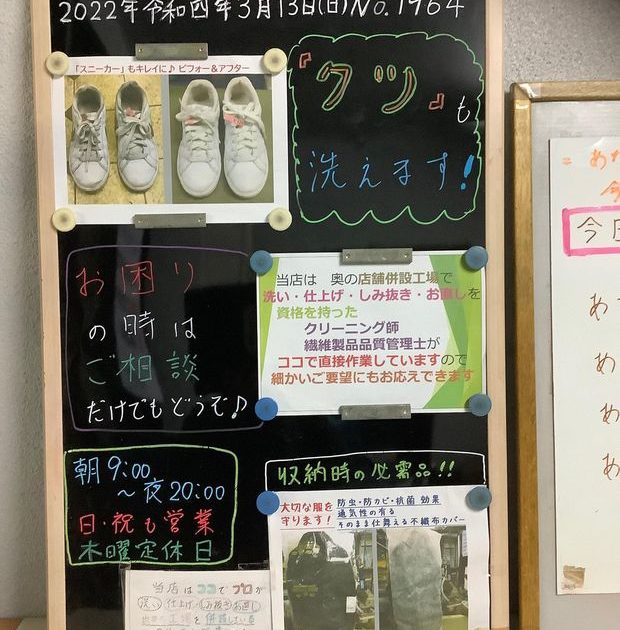 2022年令和四年3月13日(日)No.1964
「スニーカー」もキレイに♪ ビフォー&アフター
『クツ』も
洗えます!
お困り
の時は
ご相談
だけでもどうぞ♪
当店は 奥の店舗併設工場で
洗い・仕上げ・しみ抜き・お直しを
資格を持った
クリーニング師
繊維製品品質管理士が
ココで直接作業していますので
細かいご要望にもお応えできます
朝9:00
～夜20:00
日・祝も営業
木曜定休日
収納時の必需品!!
大切な服を
守ります!
防虫・防カビ・抗菌 効果
通気性の有る
そのまま仕舞える不織布カバー
当店はココでプロが
洗い 仕上げ しみ抜き お直し
工場を併設している
今日
あ
あ
あ
あ